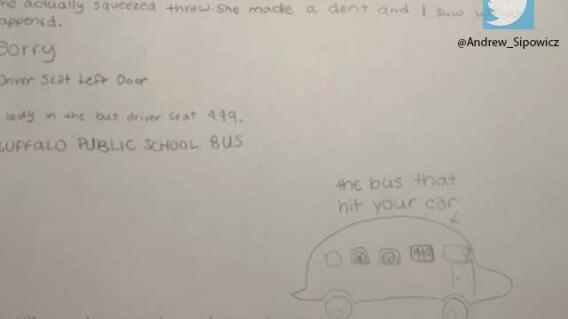 he actually squeezed threw. She made a dent and I saw
appened.
Sorry
Driver Seat Left Door
lady in the bus driver seat 449.
BUFFALO PUBLIC SCHOOL BUS
the bus that
hit your car
449
@Andrew_Sipowicz